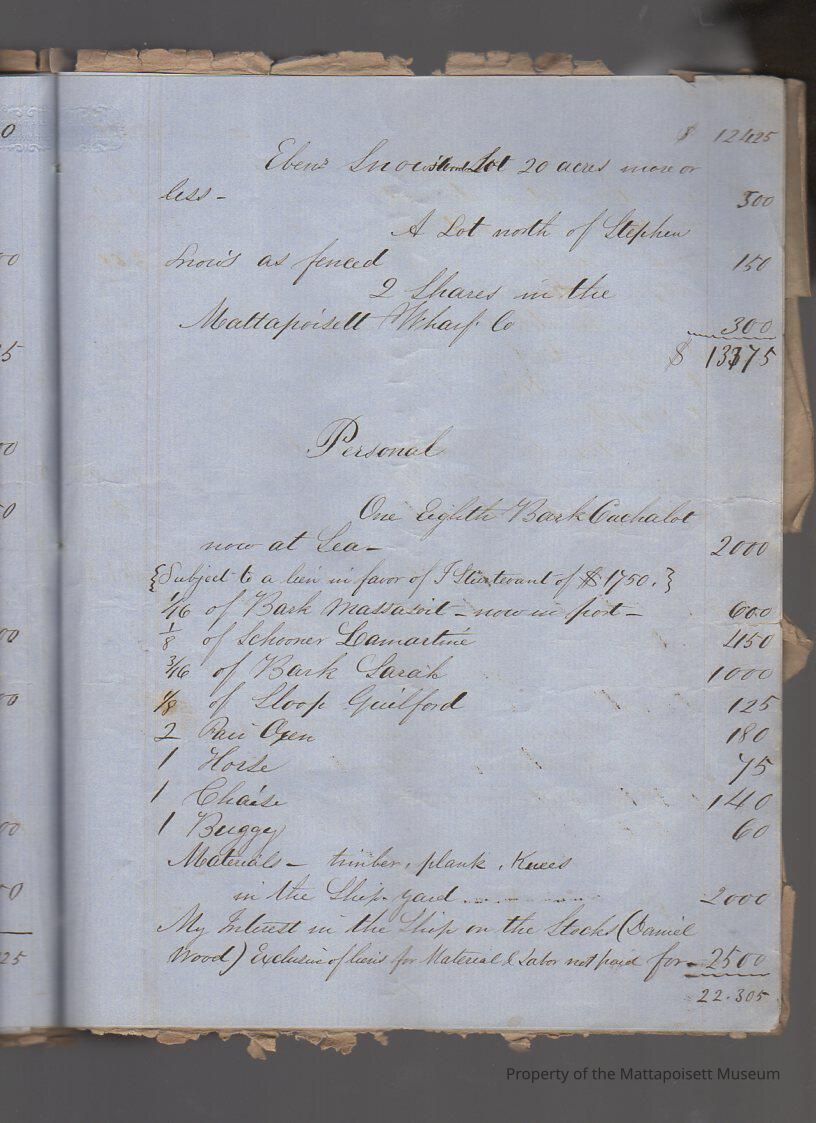 $ 12425
Eben^r Snow's Lot 20 acres more or
less - 300
A Lot north of Stephen
Snow's as fenced 150
2 Shares in the
Mattapoisett Wharf Co 300
$ 13175
Personal
One Eighth Bark Cachalot
now at Sea - 2000
{Subject to a lien in favor of J Sturtevant of $1750.}
1/16 of Bark Massasoit - now in port - 600
1/8 of Schooner Lamartine 450
3/16 of Bark Sarah 1000
1/8 of Sloop Guilford 125
2 Pair Oxen 180
1 Horse 75
1 Chaise 140
1 Buggy 60
Materials - timber, plank, Knees
in the Ship-yard ........ 2000
My Interest in the Ship on the Stocks (Daniel
Wood) Exclusive of liens for Material & Labor not paid for - 2500
22.305
Property of the Mattapoisett Museum